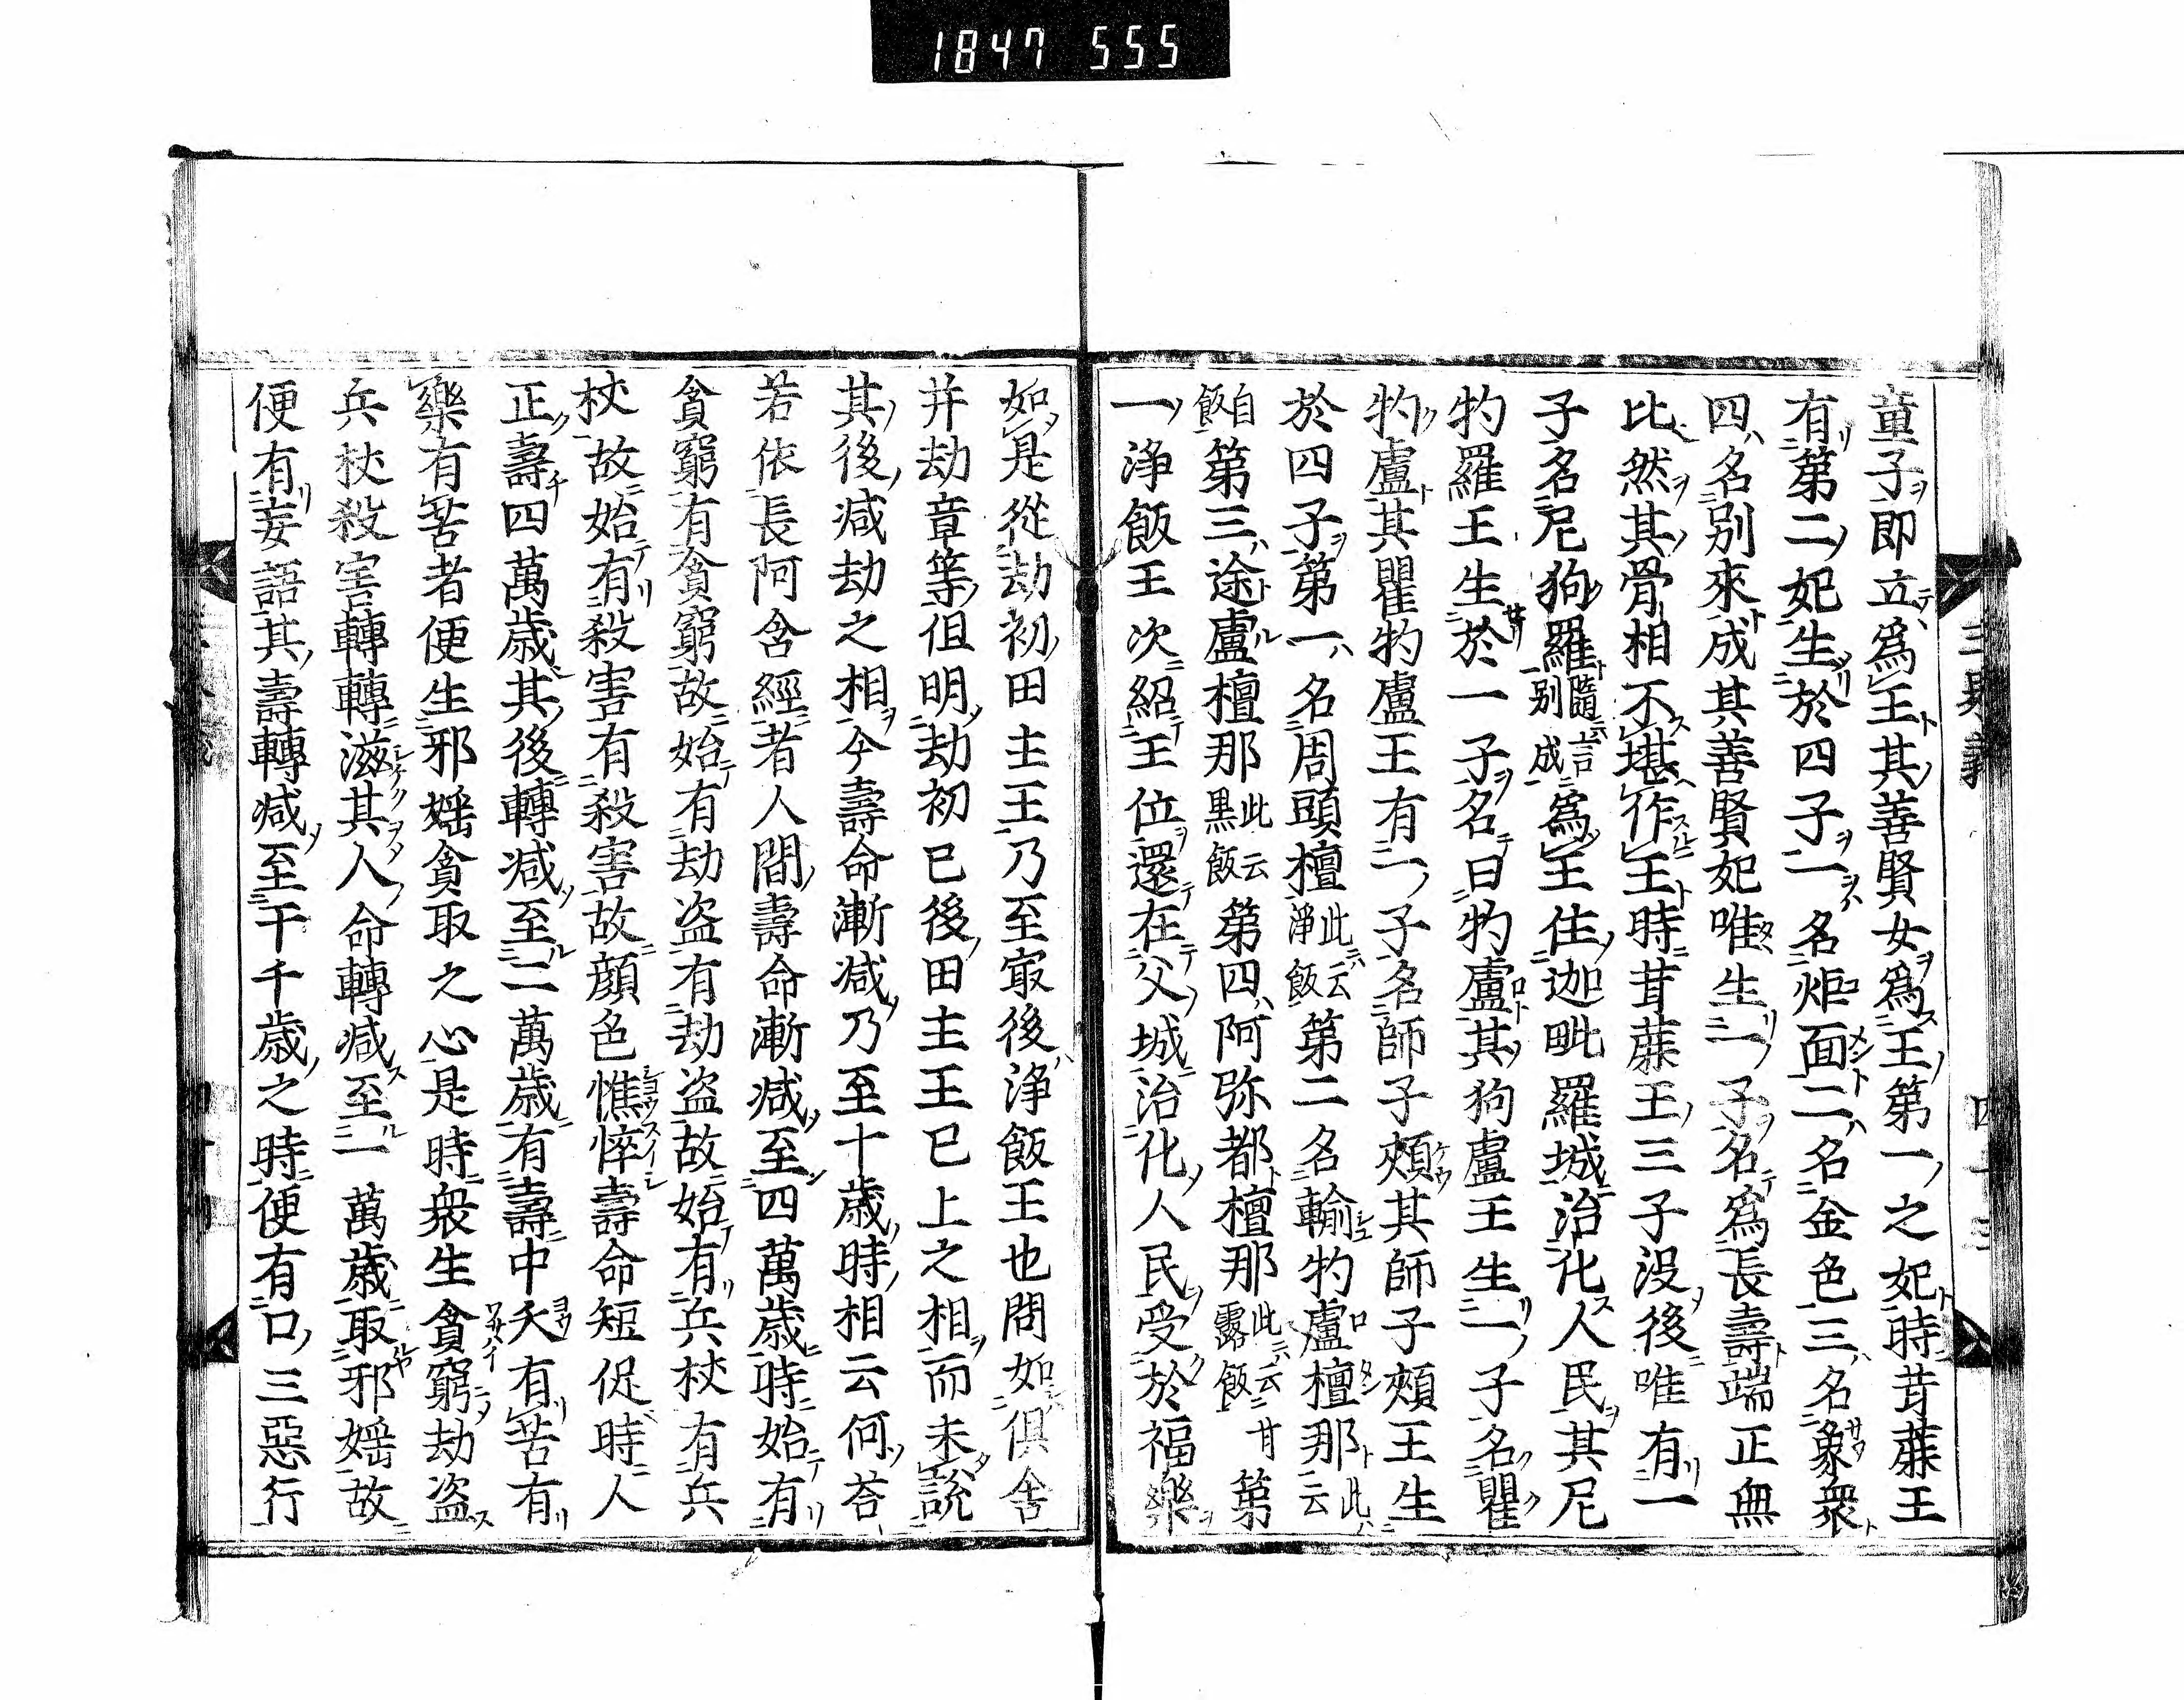 1847 555
童子即立為王其善賢女為王第一之妃時甘蔗王
有第二妃生於四子一名炬面二名金色三名象衆
四名別來成其善賢妃唯生一子名為長壽端正無
比然其骨相不堪作王時甘蔗王三子没後唯有一
子名尼狗羅隨言別成為王住迦毗羅城治化人民其尼
狗羅王生於一子名曰狗盧其狗盧王生一子名瞿
狗盧其瞿狗盧王有一子名師子頰其師子頰王生
於四子第一名周頭檀此云淨飯第二名輸狗盧檀那此云
白飯第三途盧檀那此云黒飯第四阿弥都檀那此云甘露飯第
一淨飯王次紹王位還在父城治化人民受於福樂
如是從劫初田主王乃至㝡後淨飯王也問如俱舍
并劫章等但明劫初已後田主王已上之相而未説
其後減劫之相今壽命漸減乃至十歳時相云何荅
若依長阿含經者人間壽命漸減至四萬歳時始有
貪窮有貪窮故始有劫盗有劫盗故始有兵杖有兵
杖故始有殺害有殺害故顔色憔悴壽命短促時人
正壽四萬歳其後轉減至二萬歳有壽中夭有苦有
樂有苦者便生邪婬貪取之心是時衆生貪窮劫盗
兵杖殺害轉轉滋其人命轉減至一萬歳取邪婬故
便有妄語其壽轉減至千千歳之時便有口三惡行